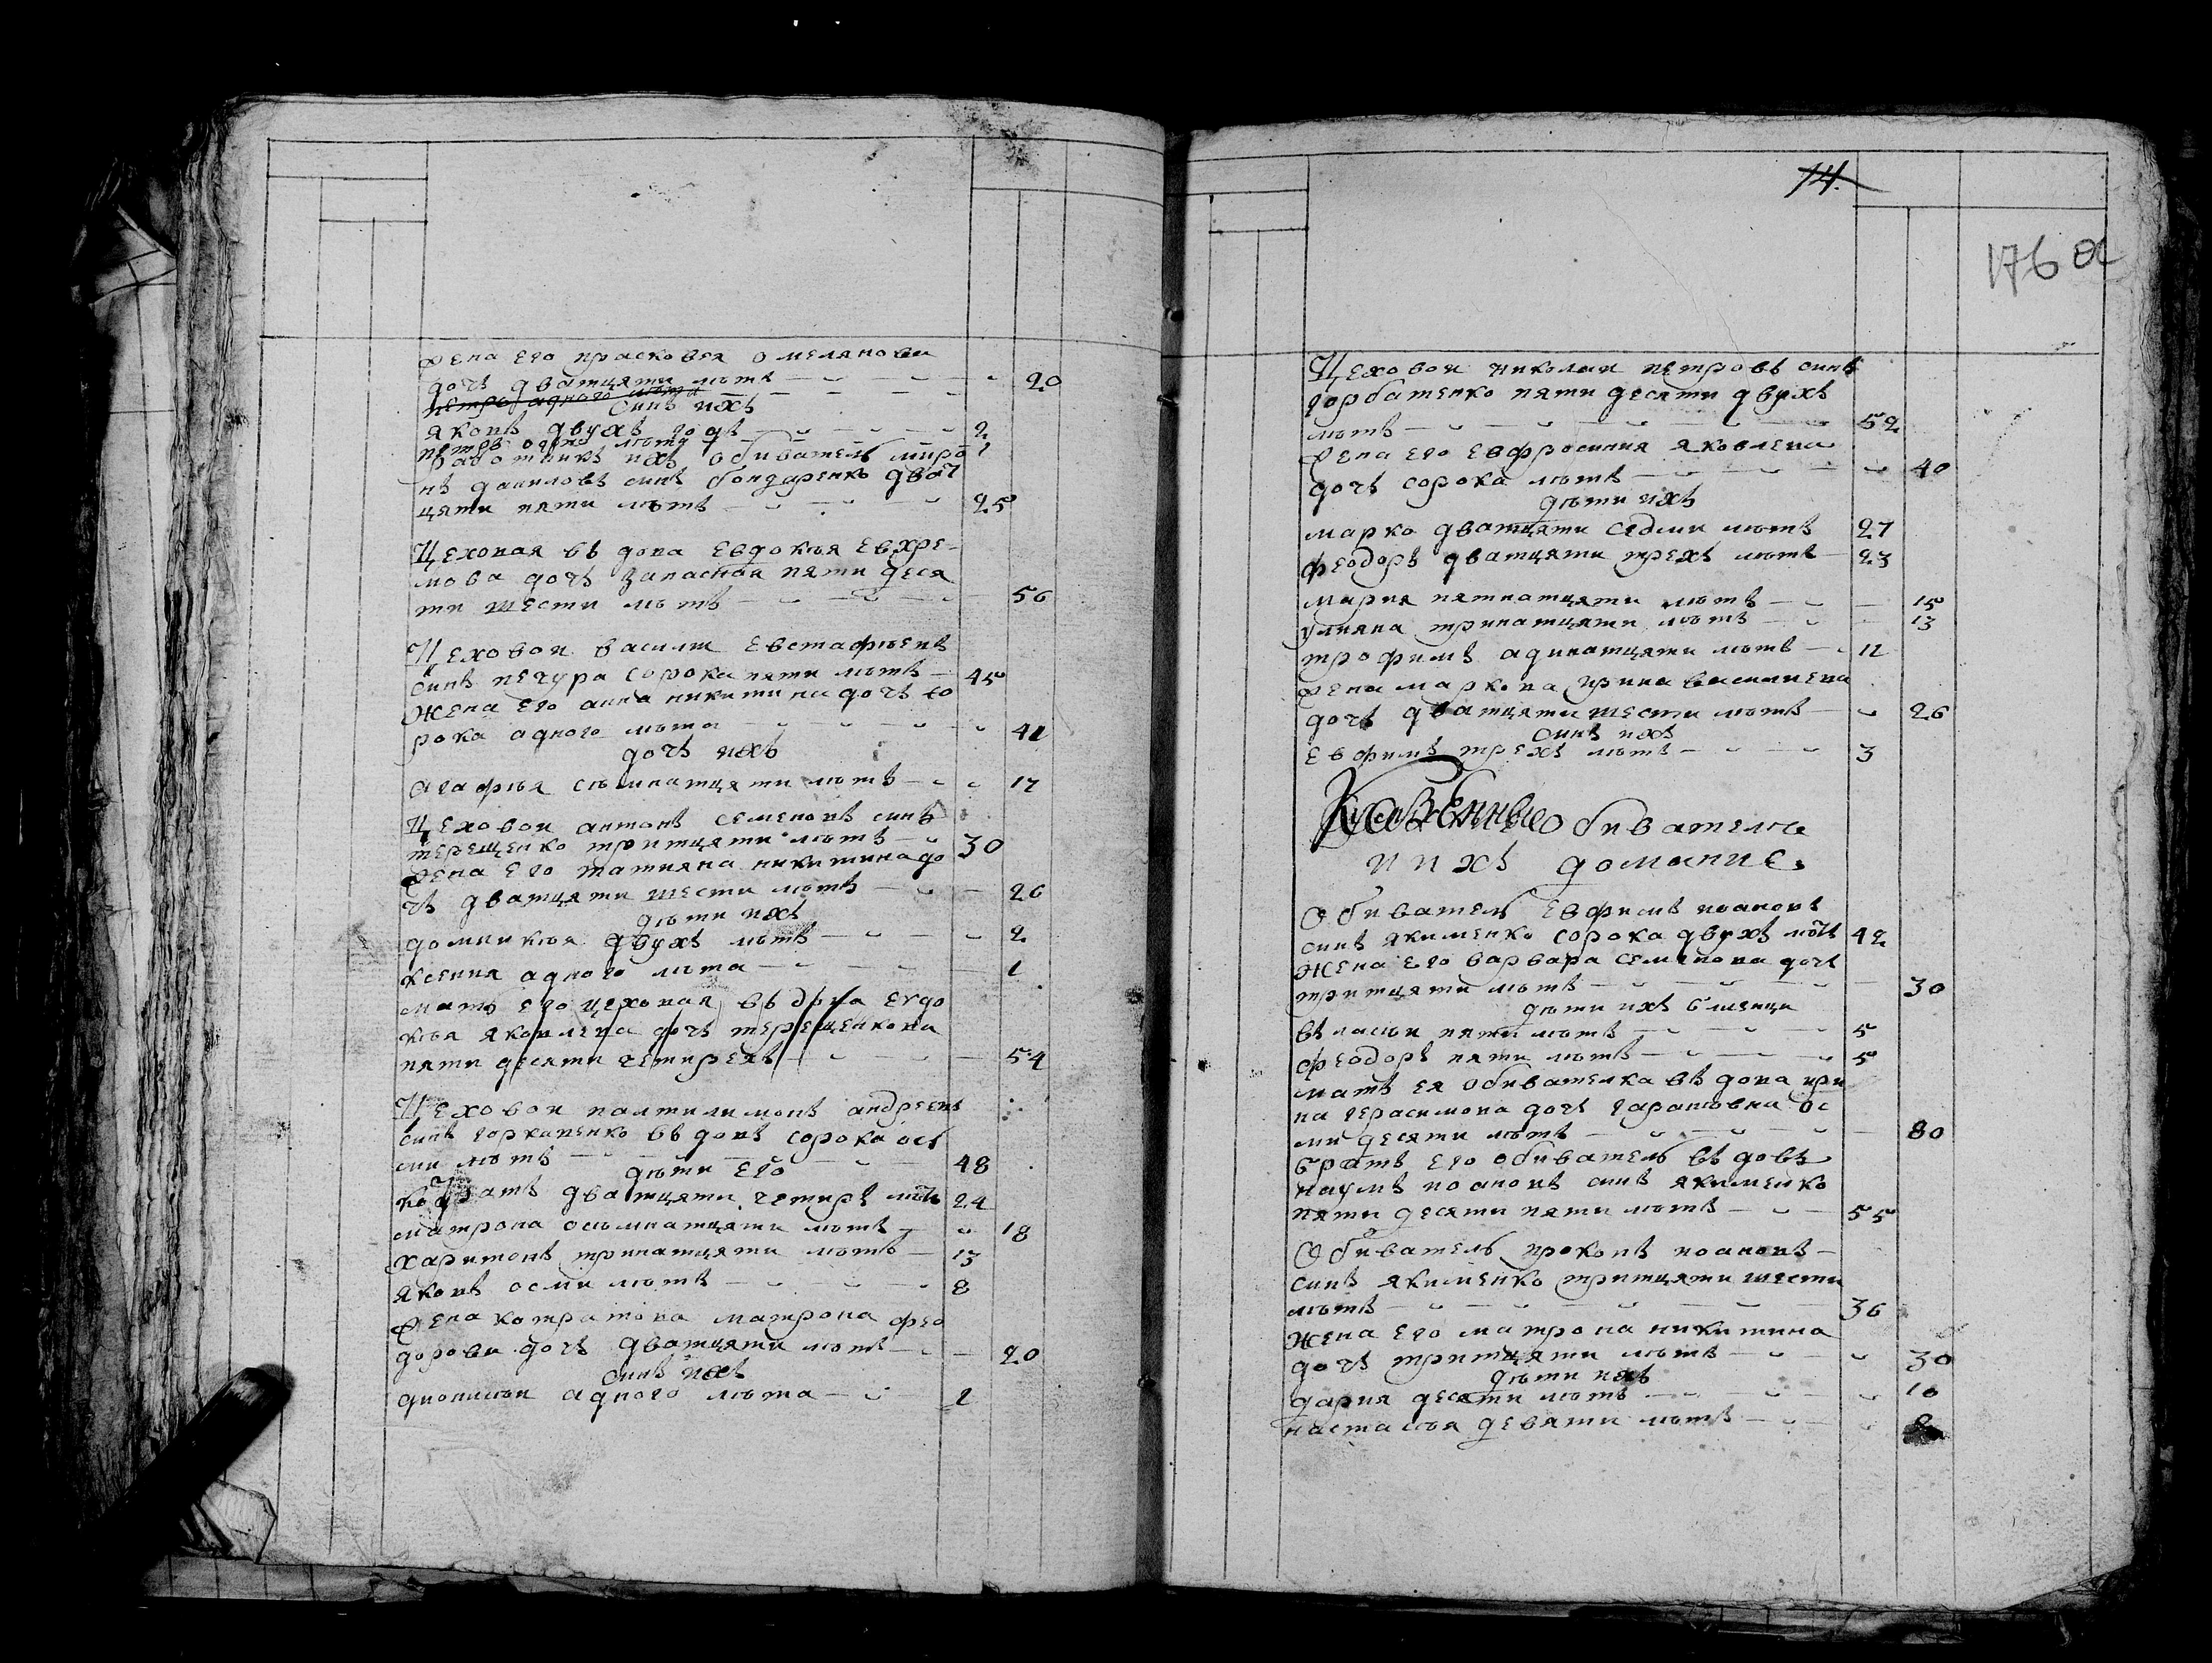 жена его прасковея омеляновa
дочъ дватцяти лѣтъ 20
петръ адного лѣта
синъ ихъ
яковъ двухъ годъ 2
петръ одного лѣта 1
работникъ ихъ обиватель миро
нъ даниловъ синъ бондаренко двад
цяти пяти лѣтъ 25
Цеховая въ дова Евдокѣя Евхре-
мова дочъ Запасная пяти деся
ти шести лѣтъ 56
Цеховои василии Евстафѣевъ
синъ печура сорока пяти лѣтъ 45
жена его анна никитина дочъ со
рока адного лѣта 41
дочъ ихъ
агафѣя сѣмнатцяти лѣтъ 17
Цеховои антонъ семеновъ синъ
терещенко тритцяти лѣтъ 30
жена его татияна никитина до
чъ дватцяти шести лѣтъ 26
дѣти ихъ
домникѣя двухъ лѣтъ 2
ксения адного лѣта 1
мать его цеховая въ дова Евдо
кѣя яковлева дочъ терещенкова
пяти десяти четирехъ 54
Цеховои пантилимонъ андреевъ
синъ горкавенко въ довъ сорока ос
ми лѣтъ 48
дѣти его
кодратъ дватцяти четиръ лѣтъ 24
матрона осѣмнатцяти лѣтъ 18
харитонъ тринатцяти лѣтъ 13
яковъ осми лѣтъ 8
жена котратова матрона фео
дорова дочъ дватцяти лѣтъ 20
синъ ихъ
дионисѣи адного лѣта 1
14.
176 а
Цеховои николаи петровъ синъ
горбатенко пяти десяти двухъ
лѣтъ 52
жена его Евфросиния яковлева
дочъ сорока лѣтъ 40
дѣти ихъ
марко дватцяти седми лѣтъ 27
феодоръ дватцяти трехъ лѣтъ 23
мария пятнатцяти лѣтъ 15
улияна тринатцяти лѣтъ 13
трофимъ адинатцяти лѣтъ 11
жена маркова ирина василиева
дочъ дватцяти шести лѣтъ 26
синъ ихъ
Евфимъ трехъ лѣтъ 3
Казенные Обивателѣ
и ихъ домание
Обиватель Евфимъ поаповъ
синъ якименко сорока двухъ лѣтъ 42
жена его варвара семенова дочъ
тритцяти лѣтъ 30
дѣти ихъ близнци
власѣи пяти лѣтъ 5
феодоръ пяти лѣтъ 5
мать ея обивателка въ дова ири
на герасимова дочъ ос
ми десяти лѣтъ 80
братъ его обиватель въ довъ
наумъ поаповъ синъ якименко
пяти десяти пяти лѣтъ 55
Обиватель прокопъ поаповъ
синъ якименко тритцяти шести
лѣтъ 36
жена его матрона никитина
дочъ тритцяти лѣтъ 30
дѣти ихъ
дария десяти лѣтъ 10
настасѣя девяти лѣтъ